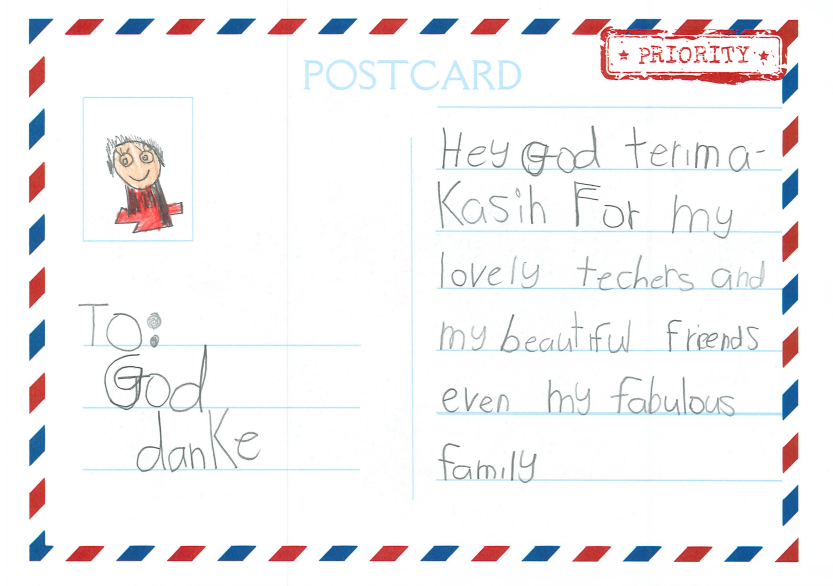 POSTCARD
★ PRIORITY ★
To:
God
danke
Hey god terima-
Kasih For my
lovely techers and
my beautiful freends
even my fabulous
family